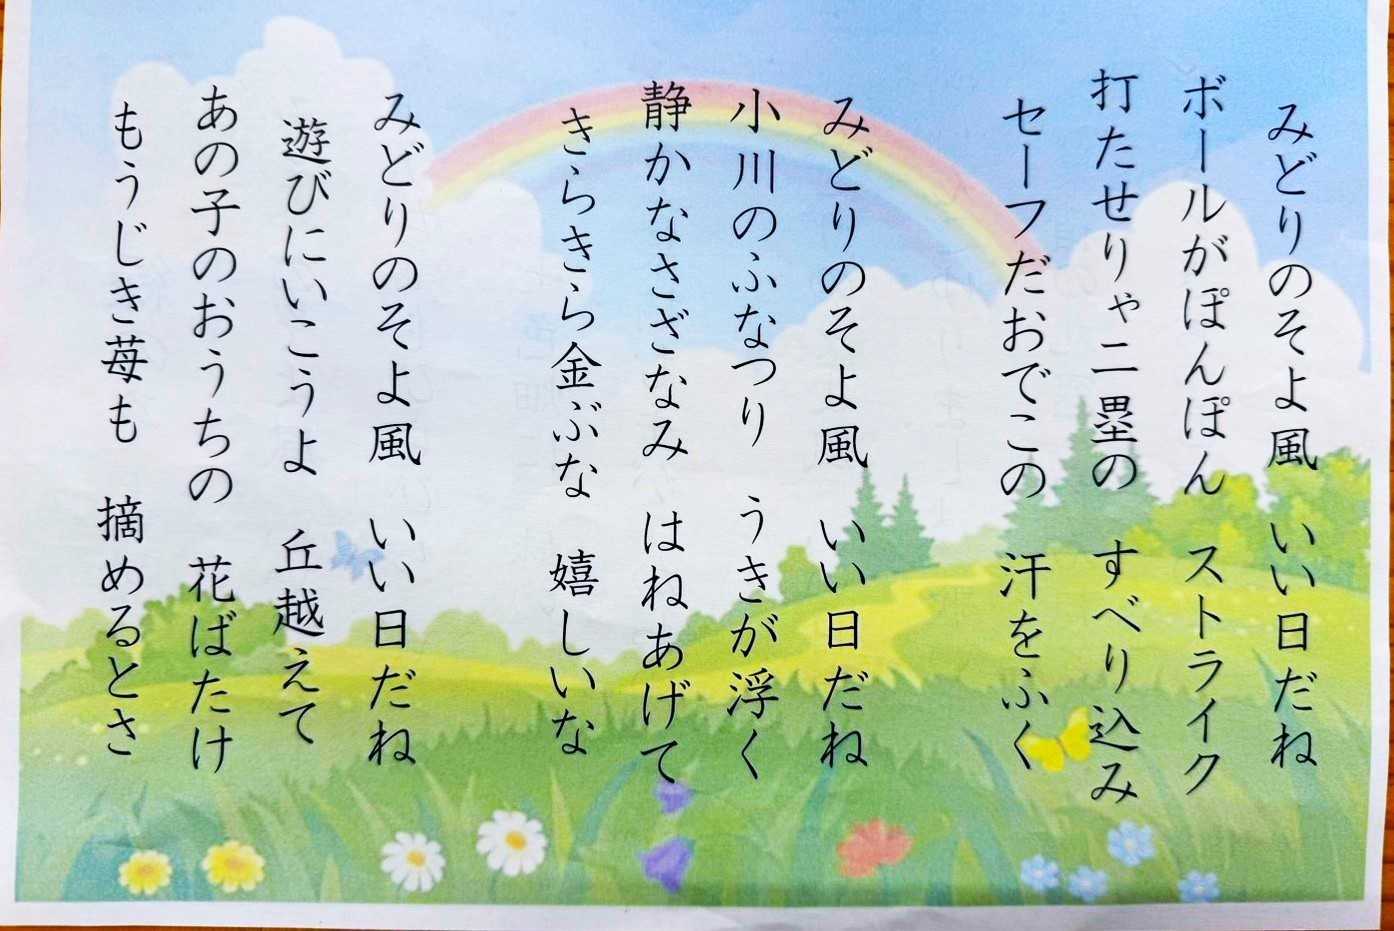 みどりのそよ風　いい日だね
ボールがぽんぽん　ストライク
打たせりゃ二塁の　すべり込み
セーフだおでこの　汗をふく
みどりのそよ風　いい日だね
小川のふなつり　うきが浮く
静かなさざなみ　はねあげて
きらきら金ぶな　嬉しいな
みどりのそよ風　いい日だね
遊びにいこうよ　丘越えて
あの子のおうちの　花ばたけ
もうじき苺も　摘めるとさ